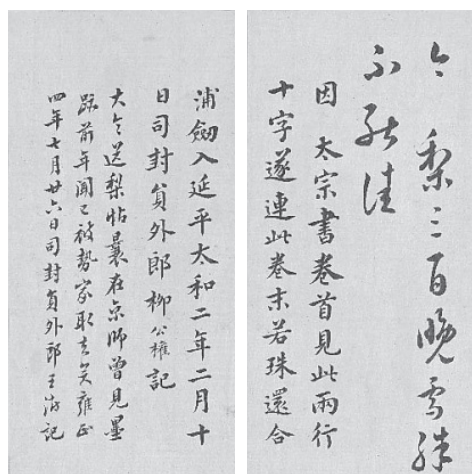 今 梨三百晚雪殊
不能佳
因 太宗書卷首見此兩行
十字遂連此卷末若珠還合
浦劒入延平太和二年二月十
日司封貟外郎柳公權記
大令送梨帖曩在京師曾見墨
跡前年聞已被勢家取去矣雍正
四年七月廿六日司封貟外郎王澍記